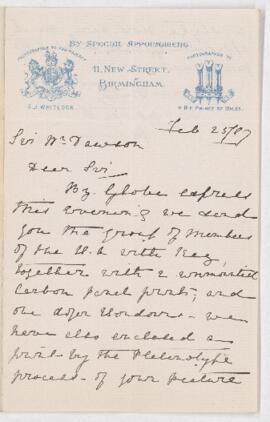 BY SPECIAL APPOINTMENTS
PHOTOGRAPHER TO THE QUEEN
PHOTOGRAPHER TO
11, NEW-STREET,
BIRMINGHAM.
H. J. WHITLOCK
H.R.H. PRINCE OF WALES.
Feb 25/87
Sir Wm Dawson
Dear Sir
By Globe express
this evening we send
you the group of Members
of the B.A. with Key,
together with 2 unmounted
Carbon panel prints; and
one dozen
have also enclosed a
print by the Platinotype
process of your picture